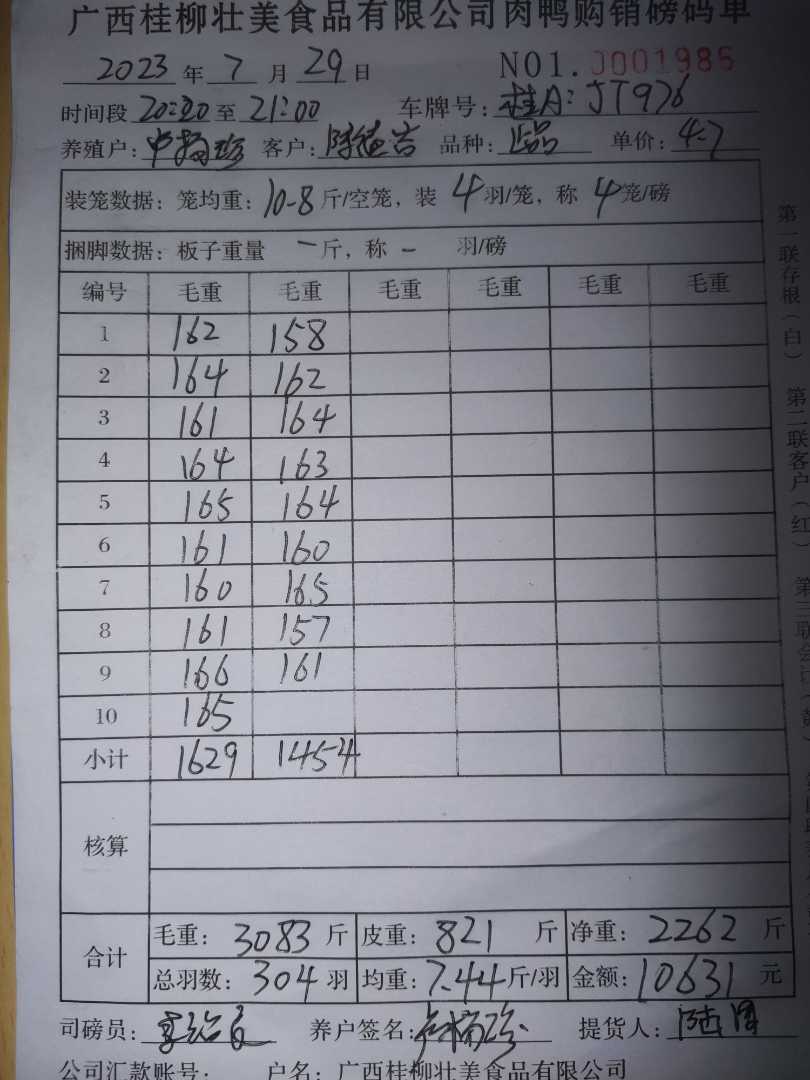 广西桂柳壮美食品有限公司肉鸭购销磅码单
2023 年 7 月 29 日 NO1. J001985
时间段 20:20 至 21:00 车牌号: 桂A: JT976
养殖户: 客户: 品种: 正品 单价: 4-7
装笼数据: 笼均重: 10-8 斤/空笼, 装 4 羽/笼, 称 4 笼/磅
捆脚数据: 板子重量 — 斤, 称 — 羽/磅
编号 毛重 毛重 毛重 毛重 毛重 毛重
1 162 158
2 164 162
3 161 164
4 164 163
5 165 164
6 161 160
7 160 165
8 161 157
9 166 161
10 165
小计 1629 1454
核算
合计
毛重: 3083 斤 皮重: 821 斤 净重: 2262 斤
总羽数: 304 羽 均重: 7.44 斤/羽 金额: 10631 元
司磅员: 养户签名: 提货人:
公司汇款账号: 户名: 广西桂柳壮美食品有限公司
第一联存根(白) 第二联客户(红)